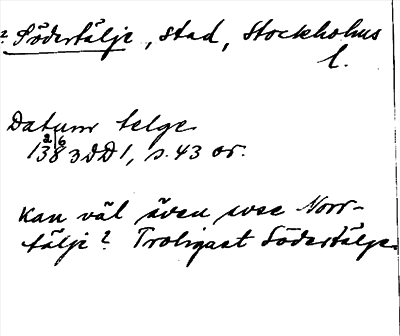 ? Södertälje, stad, Stockholms
l.
Datum telge
13 2/6 83 DD1, s. 43 or.
Kan väl även avse Norr-
tälje? Troligast Södertälje.